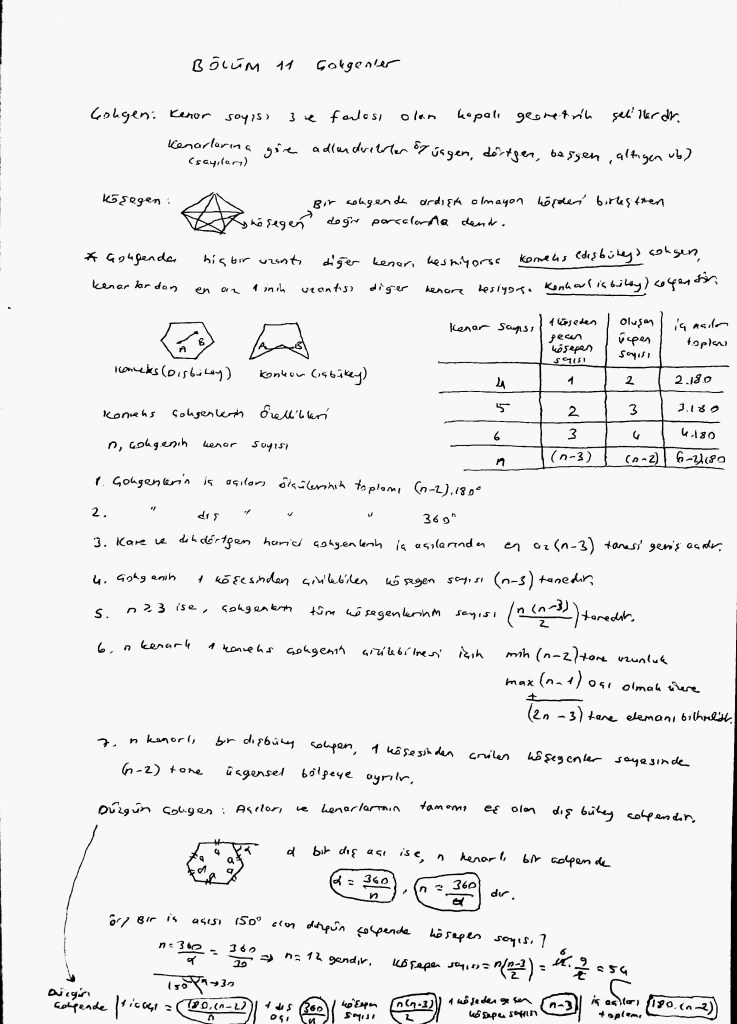 BÖLÜM 11 Çokgenler
Çokgen: Kenar sayısı 3 ve fazlası olan kapalı geometrik şekillerdir.
Kenarlarına göre adlandırılırlar ör/ üçgen, dörtgen, beşgen, altıgen vb)
(sayıları)
Köşegen: Bir çokgende ardışık olmayan köşeleri birleştiren
köşegen doğru parçalarına denir.
* Çokgende hiçbir uzantı diğer kenarı kesmiyorsa konveks (dışbükey) çokgen,
kenarlardan en az 1 inin uzantısı diğer kenarı kesiyorsa konkav (içbükey) çokgendir.
A B A B
Konveks (Dışbükey) Konkav (içbükey)
Kenar sayısı | 1 köşeden geçen köşegen sayısı | Oluşan üçgen sayısı | iç açılar toplamı
4 | 1 | 2 | 2.180
5 | 2 | 3 | 3.180
6 | 3 | 4 | 4.180
n | (n-3) | (n-2) | (n-2).180
Konveks Çokgenlerin Özellikleri
n, çokgenin kenar sayısı
1. Çokgenlerin iç açıları ölçülerinin toplamı (n-2).180°
2. " dış " " " 360°
3. Kare ve dikdörtgen harici çokgenlerin iç açılarından en az (n-3) tanesi geniş açıdır.
4. Çokgenin 1 köşesinden çizilebilen köşegen sayısı (n-3) tanedir.
5. n≥3 ise, çokgenlerin tüm köşegenlerinin sayısı (n(n-3)/2) tanedir.
6. n kenarlı 1 konveks çokgenin çizilebilmesi için min (n-2) tane uzunluk
max (n-1) açı olmak üzere
+
(2n-3) tane elemanı bilinmelidir.
7. n kenarlı bir dışbükey çokgen, 1 köşesinden çizilen köşegenler sayesinde
(n-2) tane üçgensel bölgeye ayrılır.
Düzgün Çokgen: Açıları ve kenarlarının tamamı eş olan dış bükey çokgendir.
α bir dış açı ise, n kenarlı bir çokgende
α = 360/n , n = 360/α dır.
ör/ Bir iç açısı 150° olan düzgün çokgende köşegen sayısı?
n = 360/α = 360/30 ⇒ n = 12 gendir. Köşegen sayısı = n(n-3)/2 = 12.9/2 = 54
150 α→30
Düzgün çokgende | 1 iç açı = (180.(n-2))/n | 1 dış açı 360/n | köşegen sayısı n(n-3)/2 | 1 köşeden geçen köşegen sayısı n-3 | iç açıları toplamı 180.(n-2)